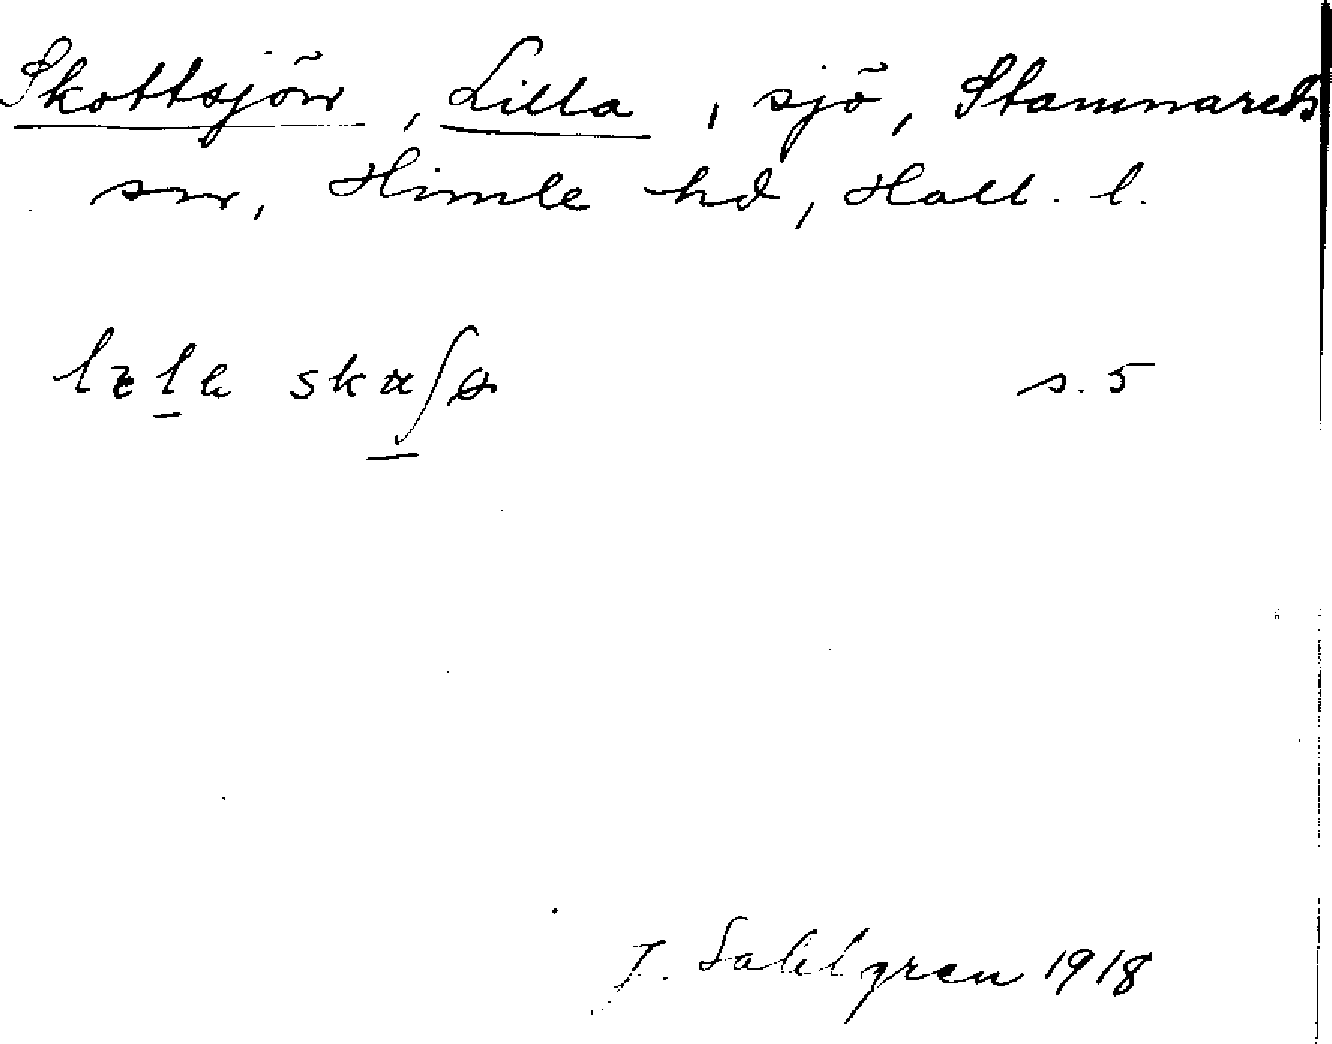 Skottsjön, Lilla, sjö, Stamnareds
sn, Himle hd, Hall. l.
s. 5
J. Sahlgren 1918